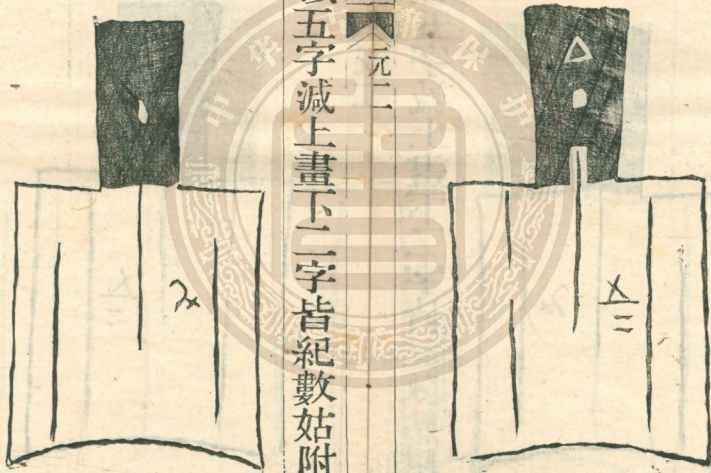 元二
五字減上畫下二字皆紀數姑附